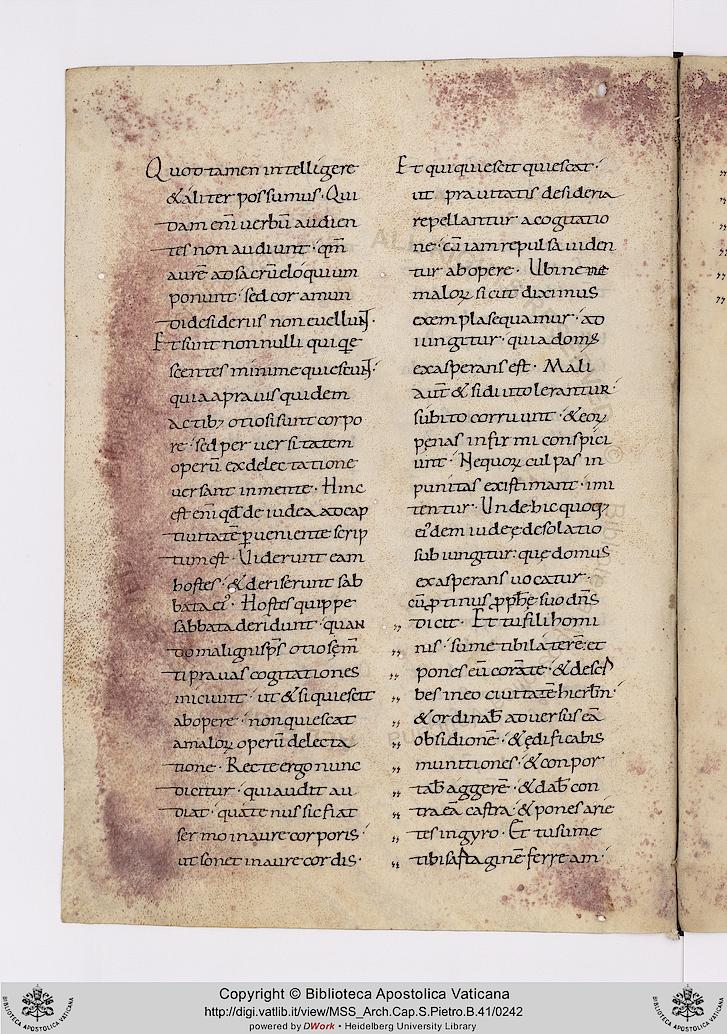 Quod tamen intellegere
& aliter possumus · Qui
dam eni͞ uerbu͞ audien
tes non audiunt · qm͞
aure͞ ad sacru͞ eloquium
ponunt · sed cor a mun
di desideriis non euellunt ·
Et sunt nonnulli qui qie
scentes minime quiescunt ·
quia a prauis quidem
actib; otiosi sunt corpo
re · sed peruersitatem
operu͞ ex delectatione
uersant in mente · Hinc
est eni͞ qd͞ de iudea ad cap
tiuitate͞ p̱ueniente scrip
tum est · Uiderunt eam
hostes · & deriserunt sab
bata ei᾿ · Hostes quippe
sabbata derident · quan
do maligni sp͞s otio se͞m
ti prauas cogitationes
iniciunt · ut & si quiescit
ab opere · non quiescat
a malorꝝ operu͞ delecta
tione · Recte ergo nunc
dicitur · qui audit au
diat · quatenus sic fiat
sermo in aure corporis ·
ut sonet in aure cordis ·
Et qui quiescit quiescat ·
ut prauitatis desideria
repellantur a cogitatio
ne · cu͞ iam repulsa uiden
tur ab opere · Ubi ne ne
malorꝝ sicut diximus
exempla sequamur · ad
iungitur · quia domꝰ
exasperans est · Mali
aut͞ & si diu tolerantur ·
subito corruunt · & eorꝝ
pęnas infirmi conspici
unt · Ne quorꝝ culpas in
punitas existimant · imi
tentur · Unde hic quoq;
ei᾿dem iudeę desolatio
subiungitur : quę domus
exasperans uocatur ·
cu͞ ꝓtinus ꝓph͞ę suo dn͞s
„ dicit · Et tu fili homi
„ nis · sume tibi latere͞ : et
„ pones eu͞ cora͞ te · & descⁱ
„ bes in eo ciuitate͞ hierłm ·
„ & ordinab͞ aduersus ea͞
„ obsidione͞ · & ędificabis
„ munitiones · & conpor
„ tab͞ aggere͞ · & dab͞ con
„ tra ea͞ castra · & pones arie
„ tes in gyro · Et tu sume
„ tibi sartagine͞ ferream ·
Copyright © Biblioteca Apostolica Vaticana
http://digi.vatlib.it/view/MSS_Arch.Cap.S.Pietro.B.41/0242
powered by DWork · Heidelberg University Library